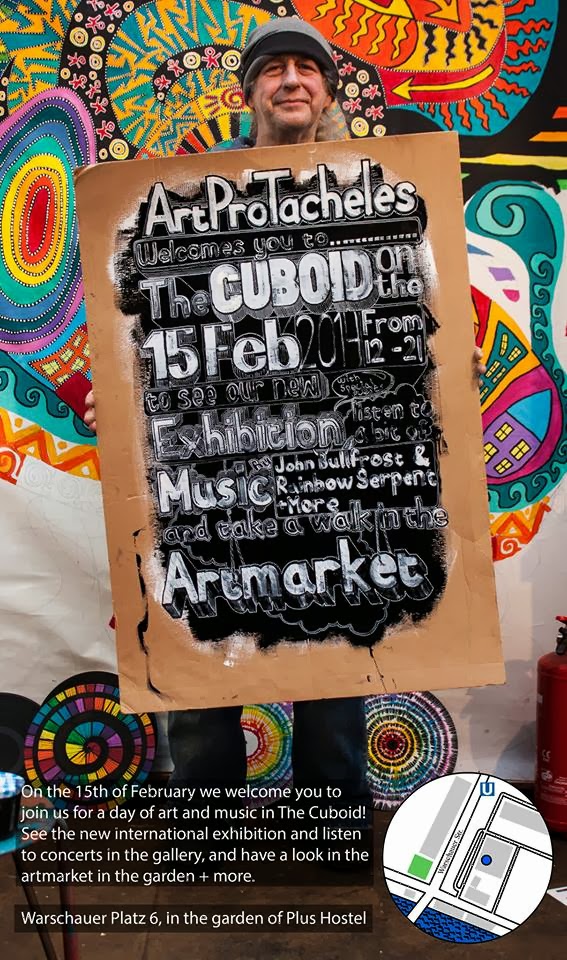 ArtProTacheles
Welcomes you to
The CUBOID on the
15 Feb 2014 From 12-21
to see our new
Exhibition listen to a bit of
Music John Bullfrost &
Rainbow Serpent
+More
and take a walk in the
Artmarket
On the 15th of February we welcome you to
join us for a day of art and music in The Cuboid!
See the new international exhibition and listen
to concerts in the gallery, and have a look in the
artmarket in the garden + more.
Warschauer Platz 6, in the garden of Plus Hostel
U
Warschauer Str.